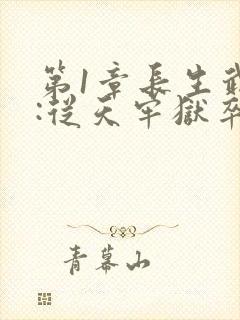 第1章長生武
:從天牢獄卒
青幕山